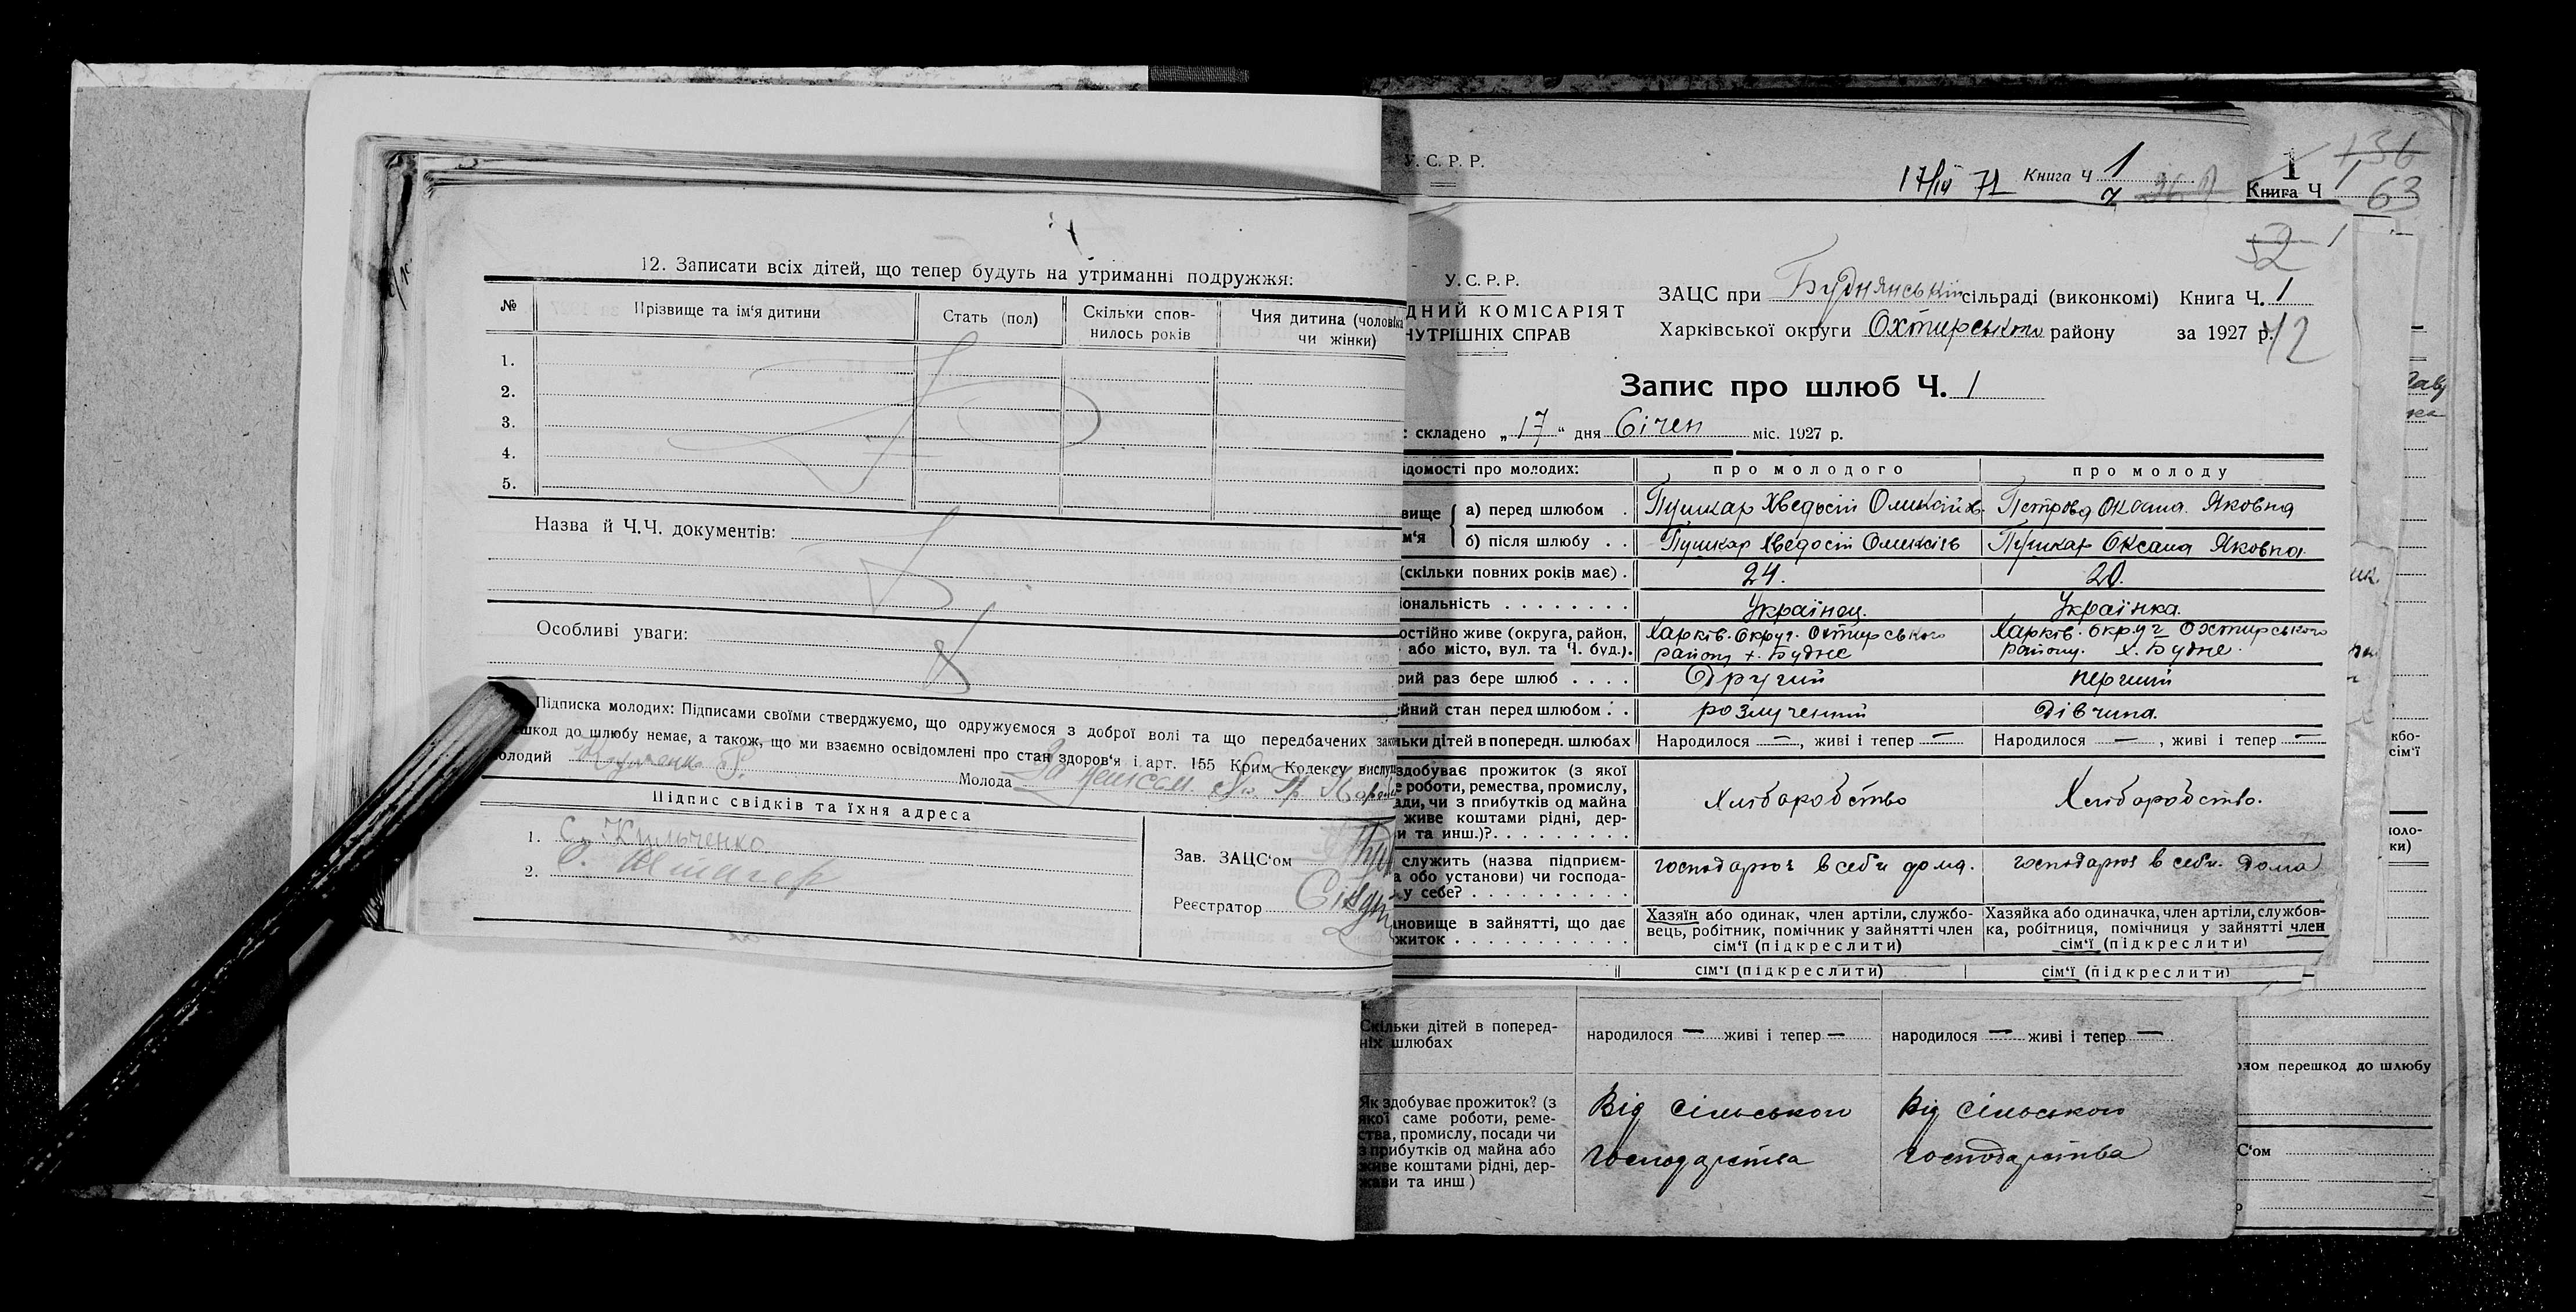 12. Записати всіх дітей, що тепер будуть на утриманні подружжя:
№ Прізвище та ім'я дитини Стать (пол) Скільки спов- Чия дитина (чоловіка
нилось років чи жінки)
1.
2.
3.
4.
5.
Назва й Ч.Ч. документів:
Особливі уваги:
Підписка молодих: Підписами своїми стверджуємо, що одружуємося з доброї волі та що передбачених зако
шкод до шлюбу немає, а також, що ми взаємно освідомлені про стан здоров'я і арт. 155 Крим Кодексу вислу
олодий Молода
Підпис свідків та їхня адреса
1. С. Кильченко
2.
Зав. ЗАЦС'ом
Реєстратор
У. С. Р. Р.
17/IV 71 Книга Ч 1
Книга Ч 1
136
63
52 1
У. С. Р. Р.
ДНИЙ КОМІСАРІЯТ
НУТРІШНІХ СПРАВ
ЗАЦС при Буднянській сільраді (виконкомі) Книга Ч. 1
Харківської округи Охтирського району за 1927 р. 42
Запис про шлюб Ч. 1
складено „17“ дня Січен міс. 1927 р.
ідомості про молодих: про молодого про молоду
вище а) перед шлюбом . Пушкар Хведосій Олексійов. Петрова Оксана Яковна
м'я б) після шлюбу . . Пушкар Хведосій Олексіїв Пушкар Оксана Яковна.
(скільки повних років має) . 24. 20.
іональність . . . . . . . . Українец. Українка.
остійно живе (округа, район, Харків. Округ. Охтирського Харків. округ Охтирського
або місто, вул. та Ч. буд.). району х. Будне району. х. Будне.
рий раз бере шлюб . . . . Другий перший
йний стан перед шлюбом . . розлученний дівчина.
ьки дітей в попередн. шлюбах Народилося —, живі і тепер — Народилося —, живі і тепер —
здобуває прожиток (з якої
е роботи, ремества, промислу,
ади, чи з прибутків од майна Хліборобство Хліборобство.
живе коштами рідні, дер-
и та инш.)?. . . . . . . . .
служить (назва підприєм-
а обо установи) чи господа- господарює в себи дома. господарює в себи дома
у себе? . . . . . . . . . . .
ановище в зайнятті, що дає
житок . . . . . . . . . . . .
Хазяїн або одинак, член артіли, службо- Хазяйка або одиначка, член артіли, службов-
вець, робітник, помічник у зайнятті член ка, робітниця, помічниця у зайнятті член
сім'ї (підкреслити) сім'ї (підкреслити)
сім'ї (підкреслити) сім'ї (підкреслити)
Скільки дітей в поперед-
ніх шлюбах народилося — живі і тепер — народилося — живі і тепер —
Як здобуває прожиток? (з
якої саме роботи, реме-
ства, промислу, посади чи
з прибутків од майна або
живе коштами рідні, дер-
жави та инш)
Від сільського Від сільського
господарства господарства
кбо-
сім'ї
ки)
ном перешкод до шлюбу
С'ом